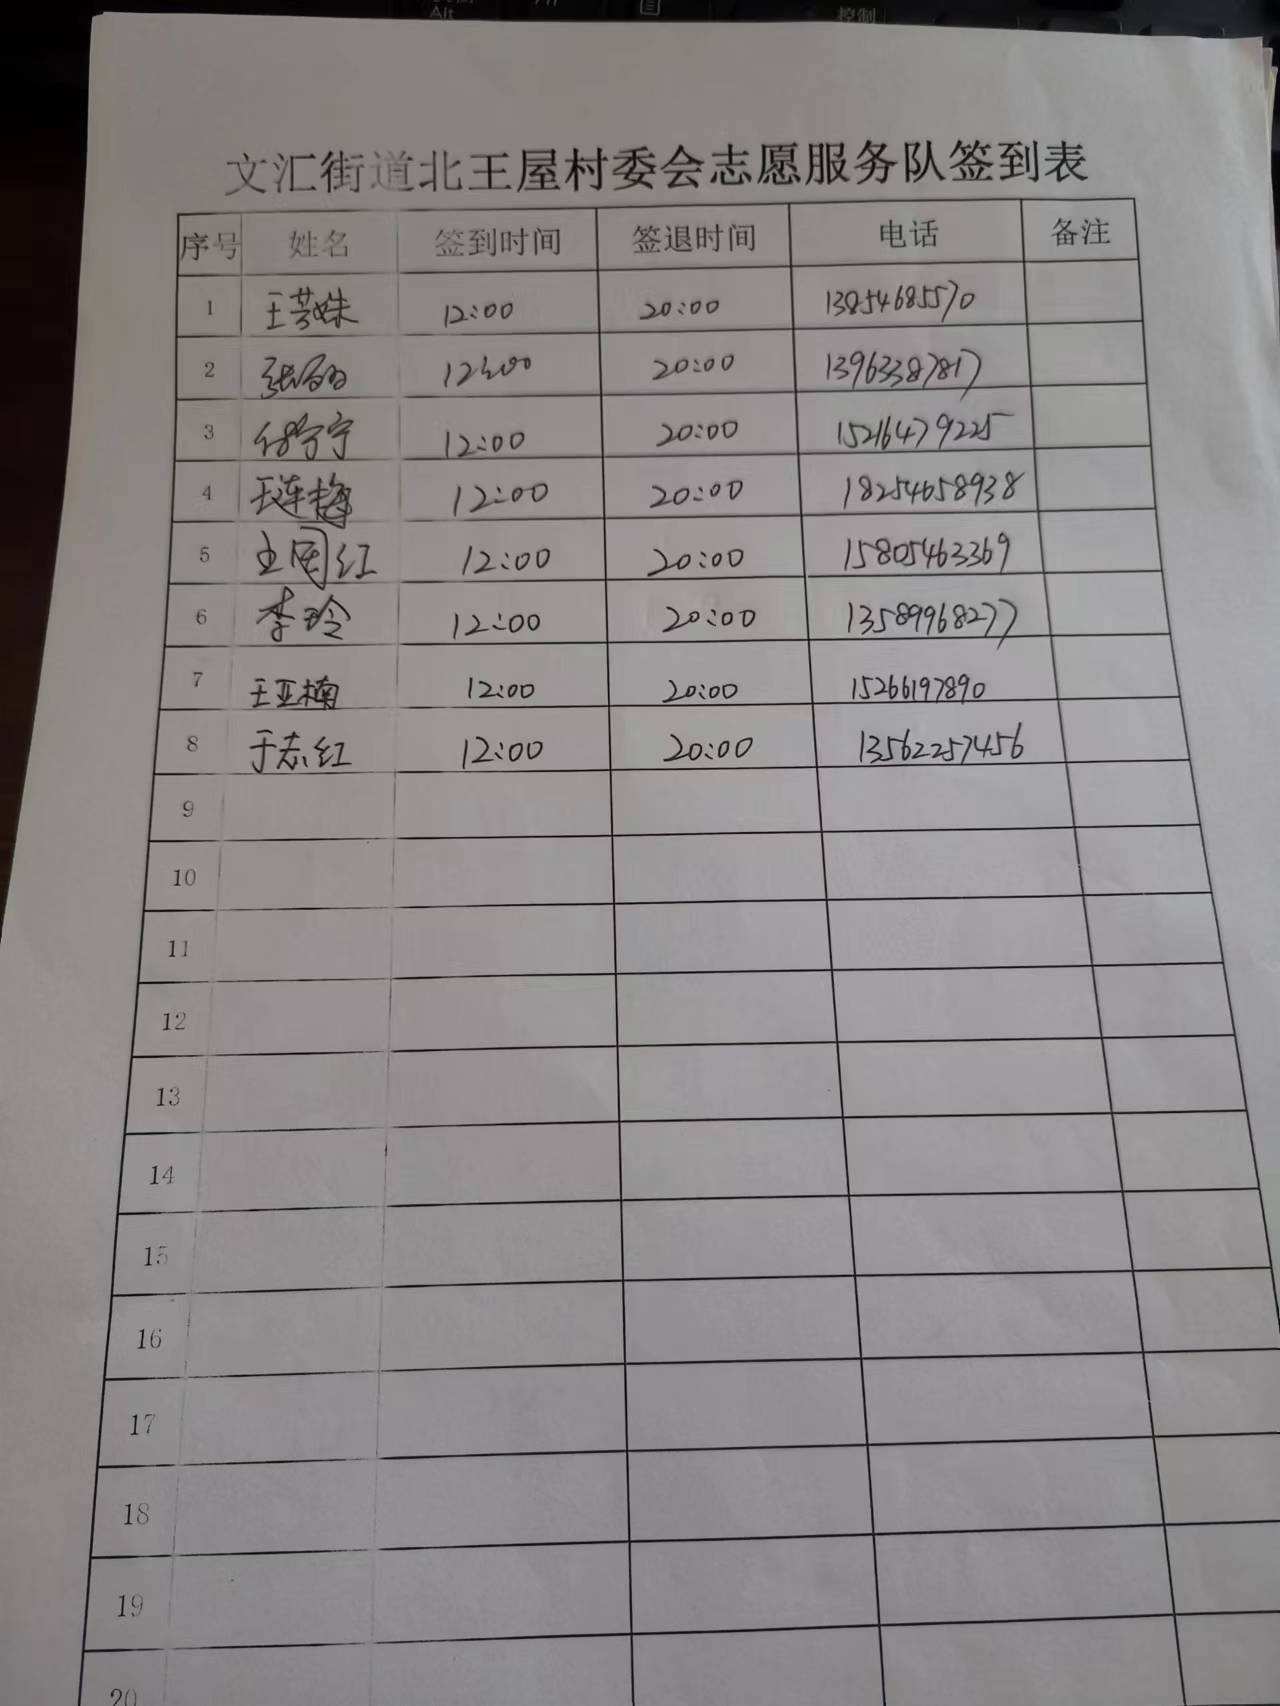 Alt
控制
文汇街道北王屋村委会志愿服务队签到表
序号 姓名 签到时间 签退时间 电话 备注
1 王芸姝 12:00 20:00 13854685570
2 12:00 20:00 13963387817
3 付宁宁 12:00 20:00 15216479225
4 王连梅 12:00 20:00 18254658938
5 王国红 12:00 20:00 15805463369
6 李玲 12:00 20:00 13589968277
7 王亚楠 12:00 20:00 15266197890
8 于志红 12:00 20:00 13562257456
9
10
11
12
13
14
15
16
17
18
19
20